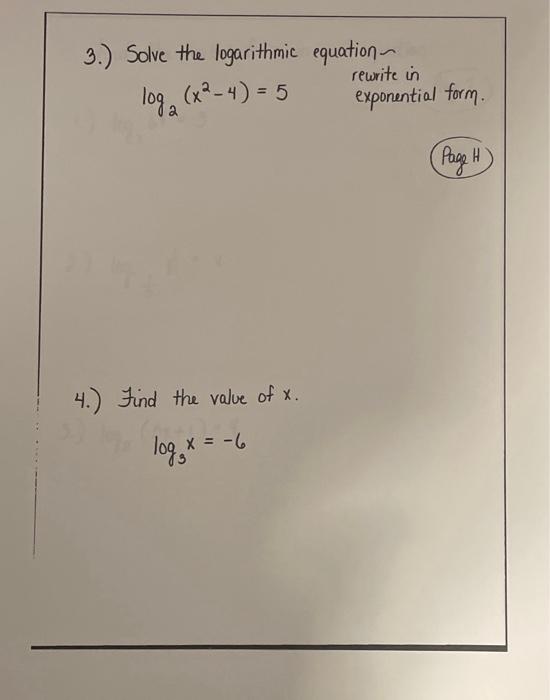 3.) Solve the logarithmic equation~
rewrite in
log₂ (x²-4) = 5
exponential form.
Page H
4.) Find the value of x.
log₃x = -6